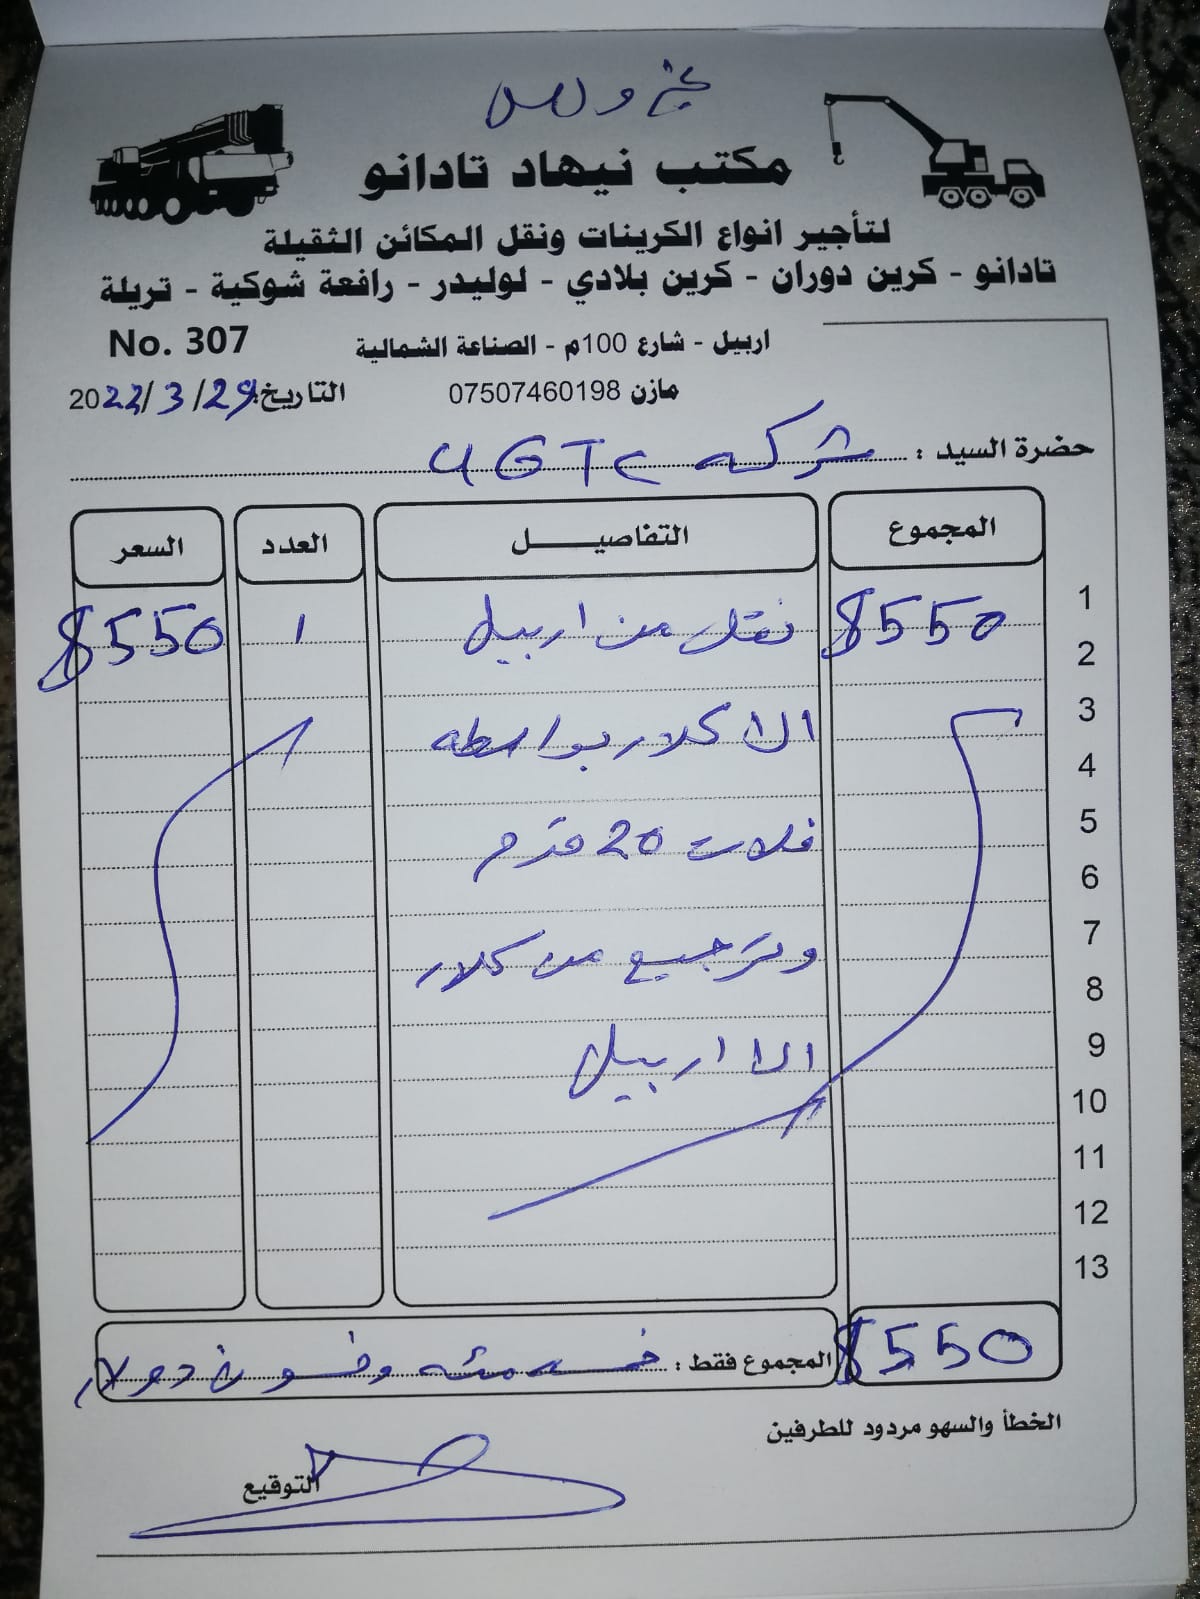 مكتب نيهاد تادانو
لتأجير انواع الكرينات ونقل المكائن الثقيلة
تادانو - كرين دوران - كرين بلادي - لوليدر - رافعة شوكية - تريلة
اربيل - شارع 100م - الصناعة الشمالية
No. 307
مازن 07507460198
التاريخ: 29/ 3 /2022
حضرة السيد : شركه UGTC
المجموع التفاصيل العدد السعر
1 $550 نقل من اربيل 1 $550
2
3 الا كلار بواسطه
4
5 فلات 20 قدم
6
7 وترجيع من كلار
8
9 الا اربيل
10
11
12
13
$550 المجموع فقط : خمسه مئه وخمسون دولار
الخطأ والسهو مردود للطرفين
التوقيع